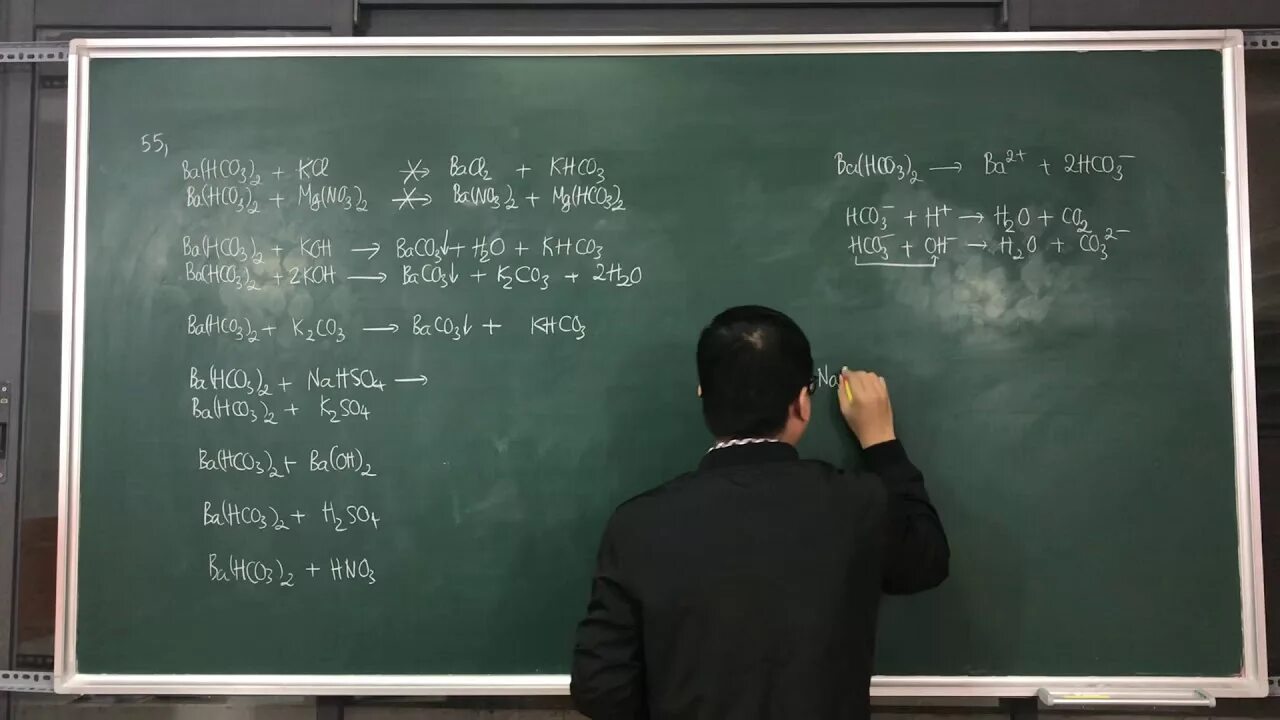 55,
Ba(HCO₃)₂ + KCl ⇸ BaCl₂ + KHCO₃
Ba(HCO₃)₂ + Mg(NO₃)₂ ⇸ Ba(NO₃)₂ + Mg(HCO₃)₂
Ba(HCO₃)₂ + KOH → BaCO₃↓ + H₂O + KHCO₃
Ba(HCO₃)₂ + 2KOH → BaCO₃↓ + K₂CO₃ + 2H₂O
Ba(HCO₃)₂ + K₂CO₃ → BaCO₃↓ + KHCO₃
Ba(HCO₃)₂ + NaHSO₄ →
Ba(HCO₃)₂ + K₂SO₄
Ba(HCO₃)₂ + Ba(OH)₂
Ba(HCO₃)₂ + H₂SO₄
Ba(HCO₃)₂ + HNO₃
Ba(HCO₃)₂ → Ba²⁺ + 2HCO₃⁻
HCO₃⁻ + H⁺ → H₂O + CO₂
HCO₃⁻ + OH⁻ → H₂O + CO₃²⁻
Na